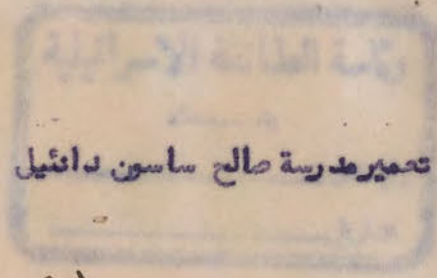 رئاسة الطائفة الاسرائيلية
تعمير مدرسة صالح ساسون دانئيل